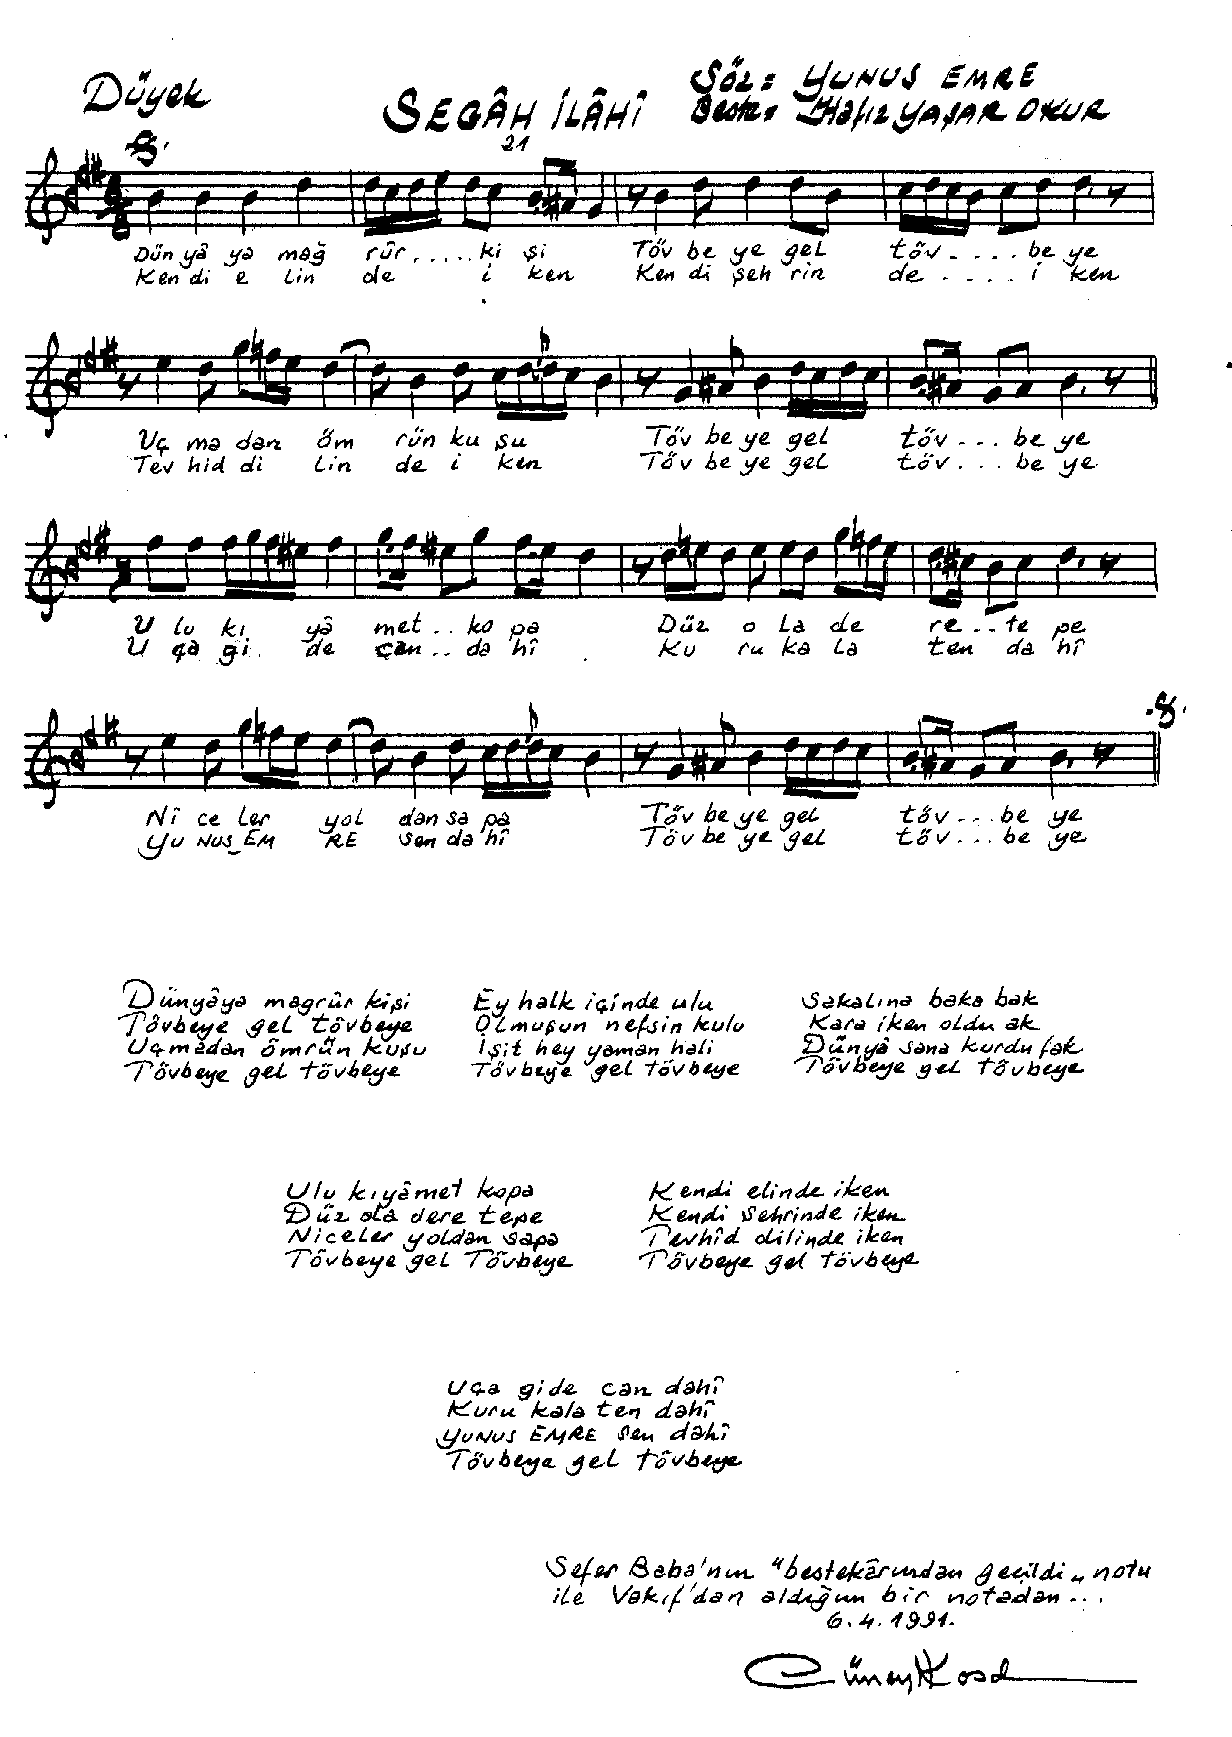 Düyek
SEGÂH İLÂHÎ
Söz: YUNUS EMRE
Beste: Hafız YAŞAR OKUR
21
Dün yâ ya mağ rûr.....ki şi Töv be ye gel töv....be ye
Ken di e lin de i ken Ken di şeh rin de....i ken
Uç ma dan öm rün ku şu Töv be ye gel töv...be ye
Tev hid di lin de i ken Töv be ye gel töv...be ye
U lu kı yâ met..ko pa Düz o la de re..te pe
U ça gi de can..da hî Ku ru ka la ten da hî
Nî ce ler yol dan sa pa Töv be ye gel töv...be ye
YU NUS_EM RE sen da hî Töv be ye gel töv...be ye
Dünyâya magrûr kişi
Tövbeye gel tövbeye
Uçmadan ömrün kuşu
Tövbeye gel tövbeye
Ey halk içinde ulu
Olmuşun nefsin kulu
İşit hey yaman hali
Tövbeye gel tövbeye
Sakalına baka bak
Kara iken oldu ak
Dünyâ sana kurdu fak
Tövbeye gel tövbeye
Ulu kıyâmet kopa
Düz ola dere tepe
Niceler yoldan sapa
Tövbeye gel Tövbeye
Kendi elinde iken
Kendi şehrinde iken
Tevhîd dilinde iken
Tövbeye gel tövbeye
Uça gide can dahî
Kuru kala ten dahî
YUNUS EMRE sen dahî
Tövbeye gel tövbeye
Sefer Baba'nın "bestekârından geçildi" notu
ile Vakıf'dan aldığım bir notadan...
6.4.1991.
Cüneyt Kosal